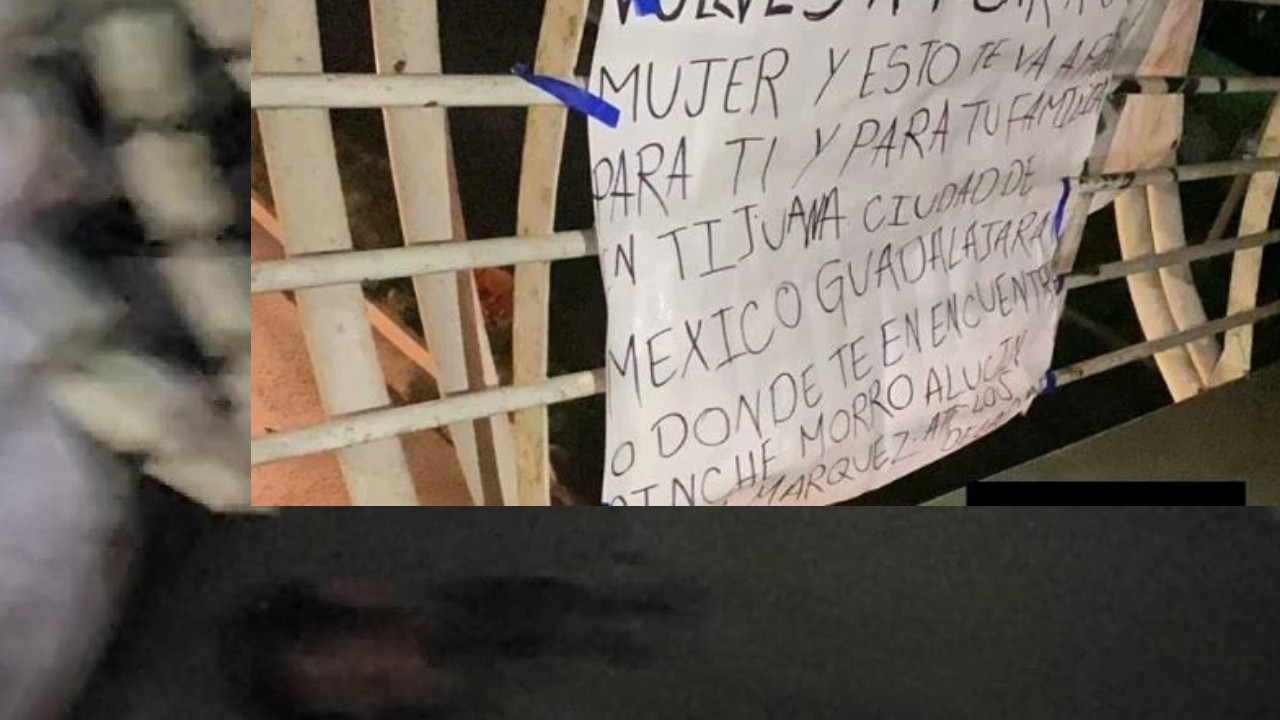 MUJER Y ESTO TE VA A
PARA TI Y PARA TU FAMILIA
N TIJUANA CIUDAD DE
MEXICO GUADALAJARA
O DONDE TE EN ENCUENTR
PINCHE MORRO ALUCIN
MARQUEZ. AT-LOS